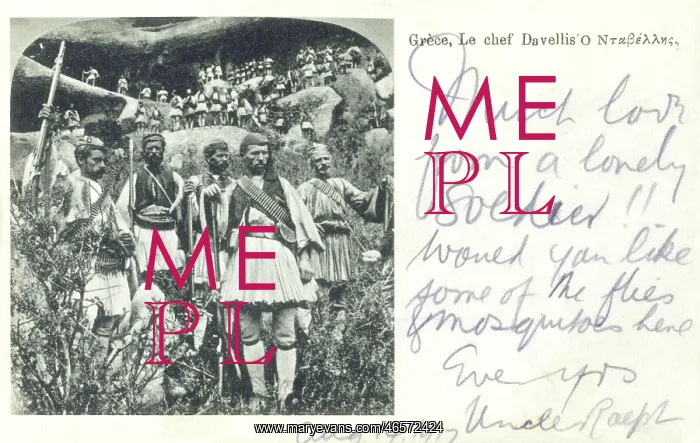 Grèce, Le chef Davellis Ὁ Νταβέλλης.
Much love
from a lonely
Soldier!!
Would you like
some of the flies
& mosquitoes here
Ever yrs
Uncle Ralph
Aug
ME
PL
ME
PL
www.maryevans.com/46572424